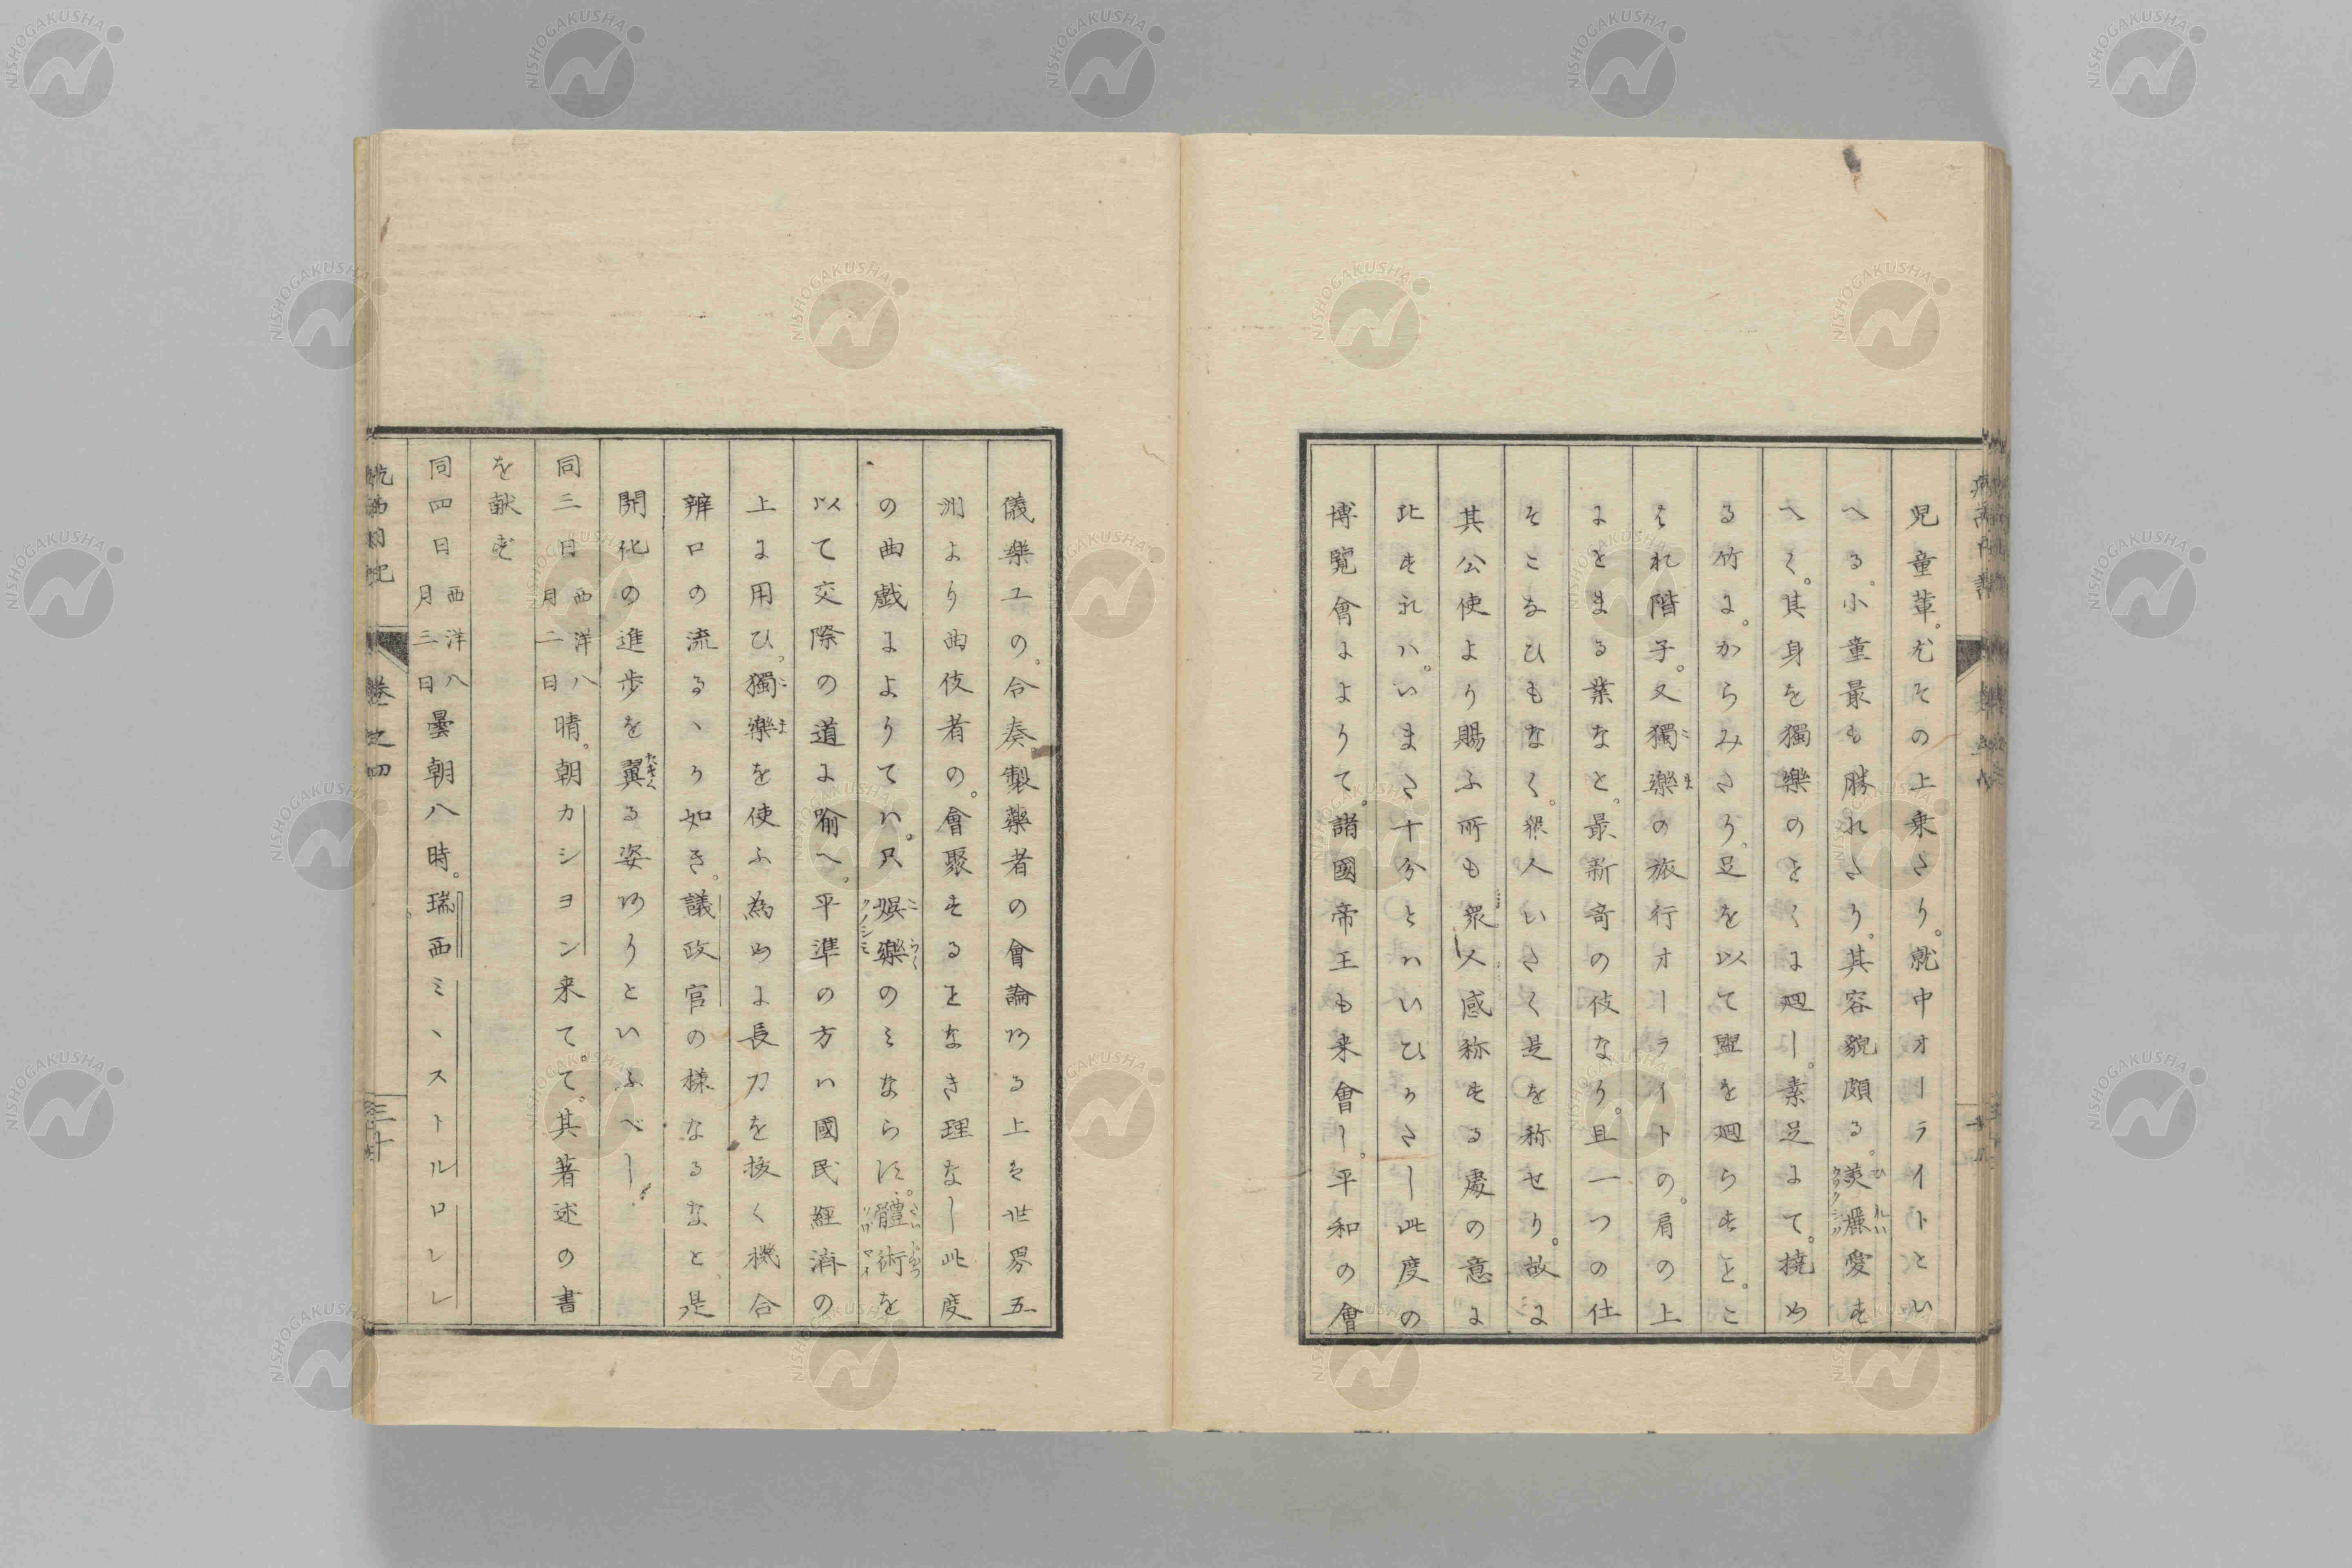 児童輩。尤その上乗さり。就中オーライトとい
へる。小童最も勝れさり。其容貌頗る。美麗愛す
へく。其身を獨樂のとくに廻し。素足にて。撓め
る竹に。からみさり、足を以て盥を廻らすと。こ
はれ階子。又獨樂の旅行オーライトの。肩の上
にとまる業なと。最新奇の伎なり。且一つの仕
そこなひもなく。衆人いさく是を称せり。故に
其公使より賜ふ所も衆人感称する處の意に
比すれハ。いまさ十分とハいひかさし此度の
博覧會によりて。諸國帝王も来會し。平和の會
儀樂工の。合奏製藥者の會論ある上を世界五
洲より曲伎者の。會聚するとなき理なし此度
の曲戯によりてハ。只娯樂のミならに。體術を
以て交際の道に喻へ。平準の方ハ國民經濟の
上に用ひ。獨樂を使ふ為めに長刀を扱く機合
辨口の流るゝか如き。議政官の様なるなと是
開化の進歩を翼る姿ありといふべし
同三日西洋八月二日晴。朝カシヨン来て。て。其著述の書
を献ず
同四日西洋八月三日曇朝八時。瑞西ミヽストルロレレ
航西日記
卷之四
三十